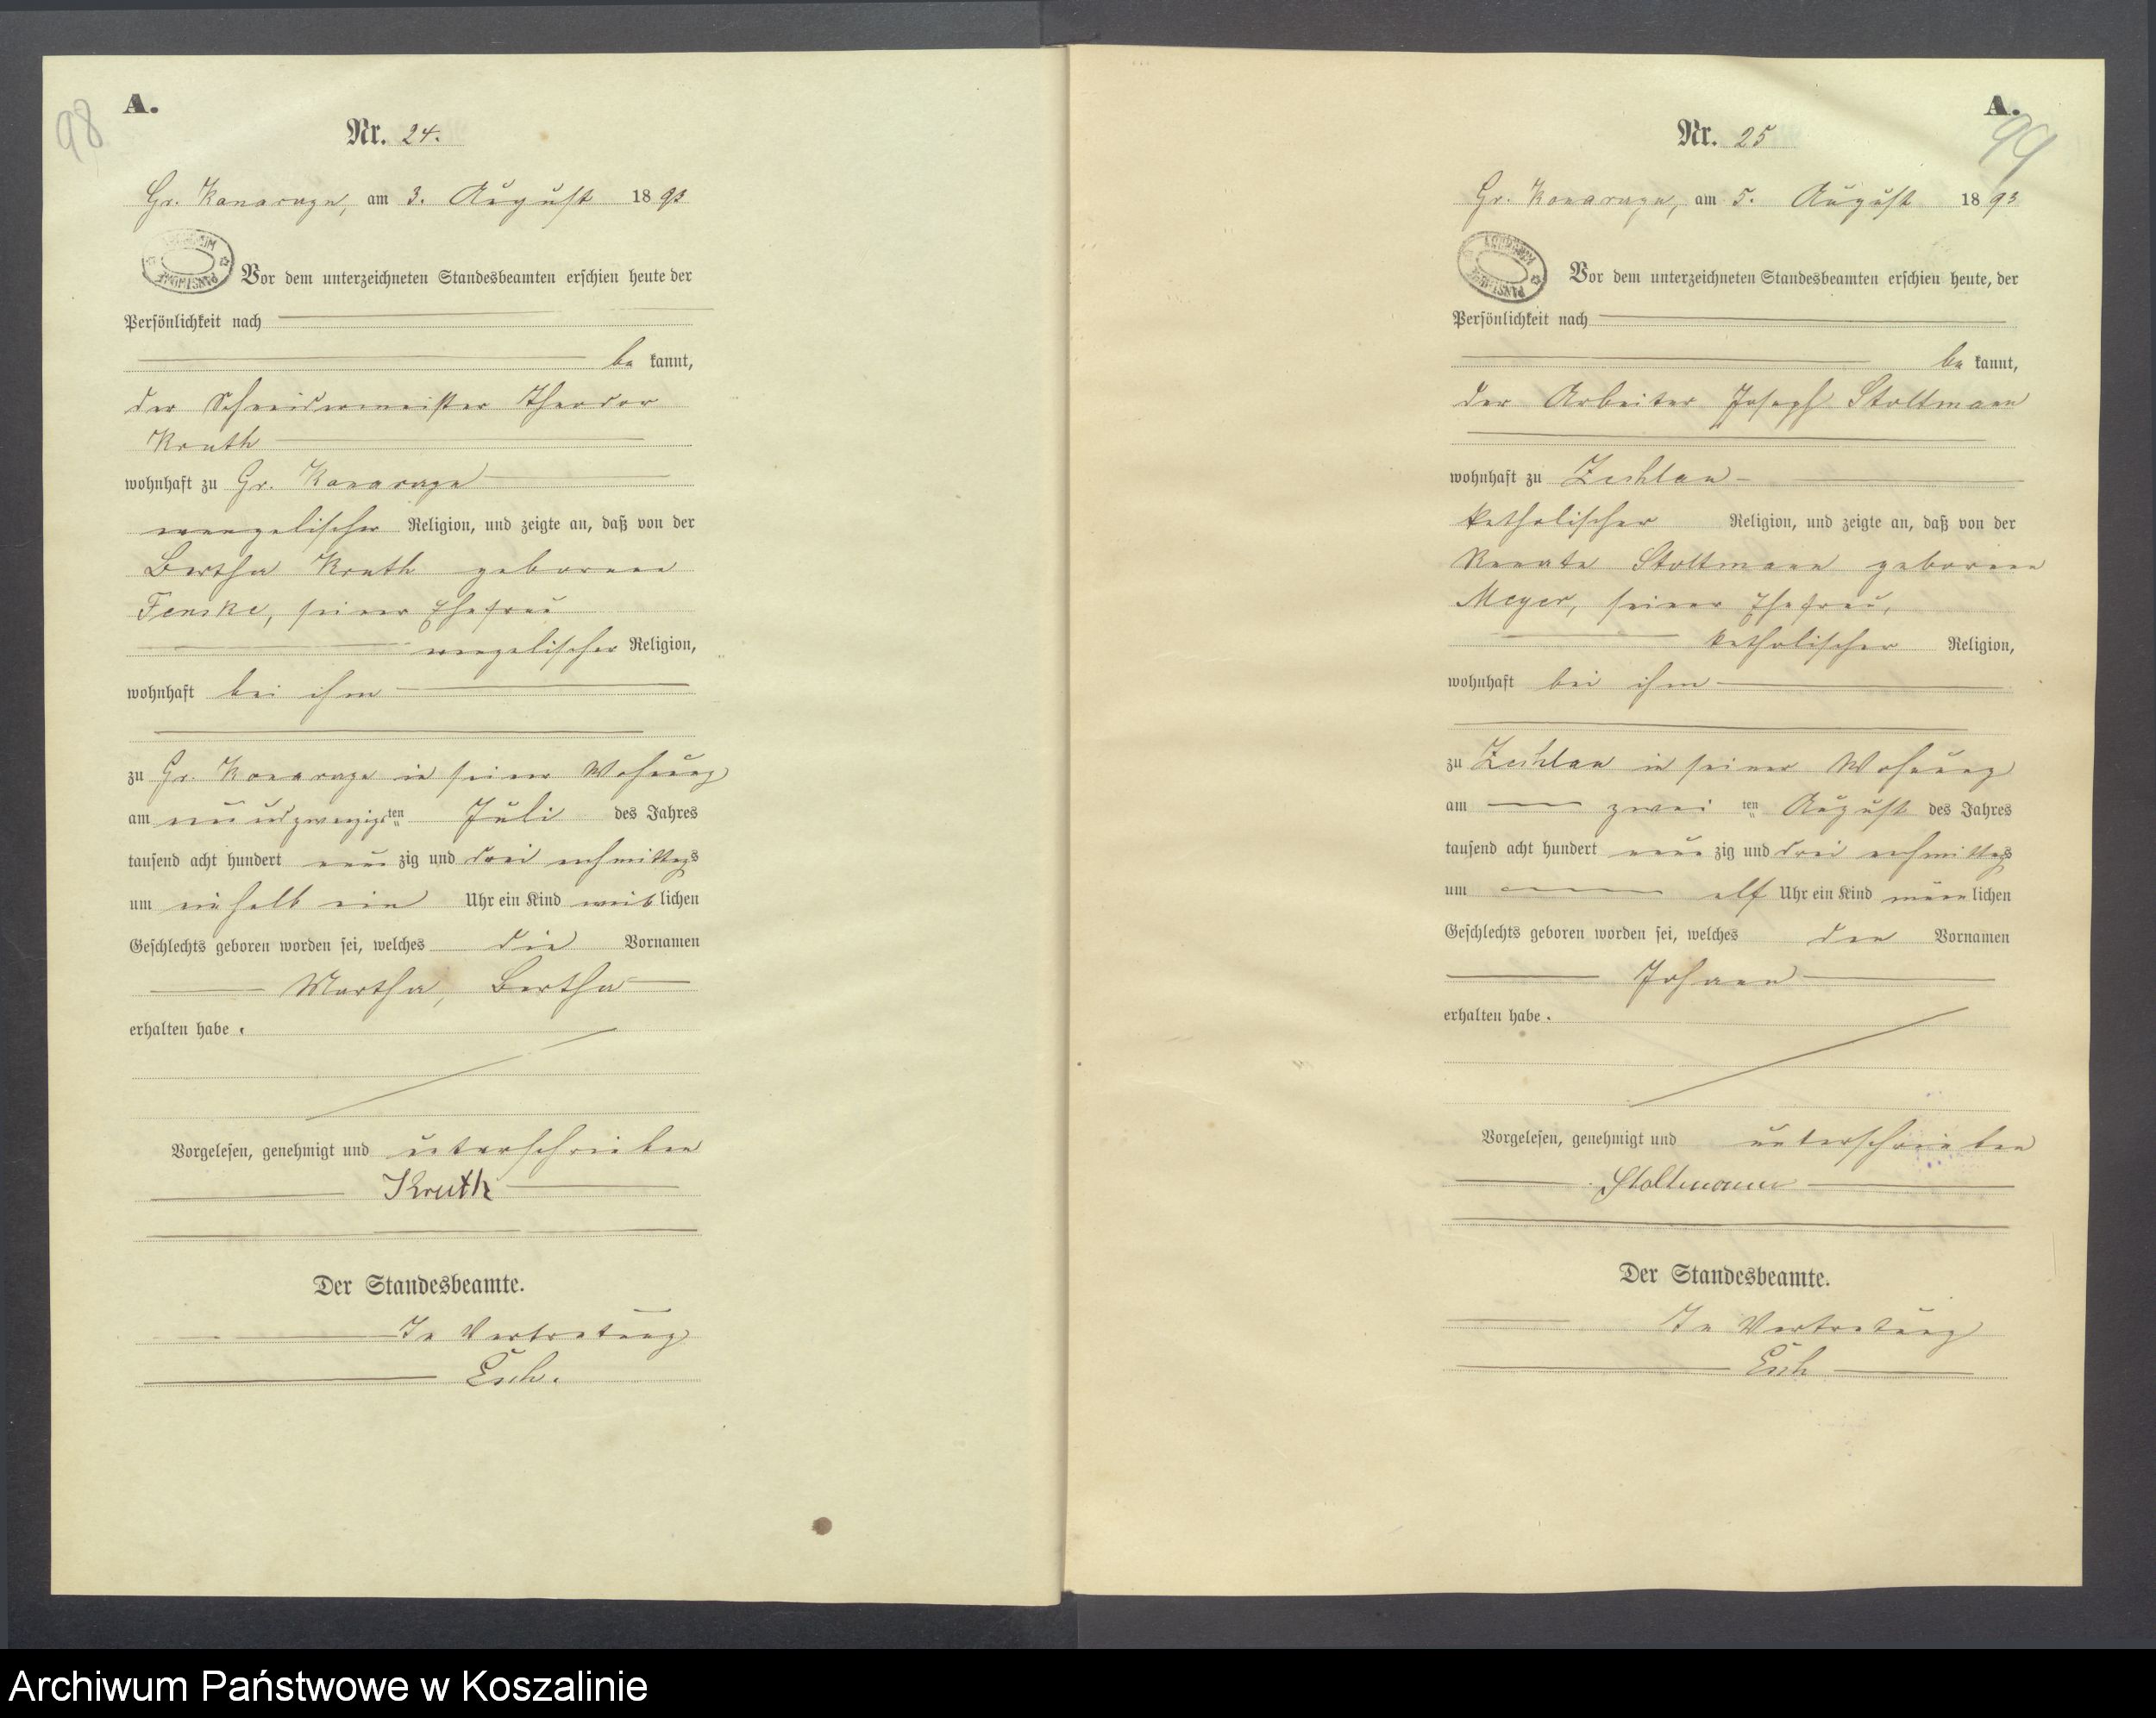 98
A.
Nr. 24.
Gr. Konarczyn, am 3. August 1893
Vor dem unterzeichneten Standesbeamten erschien heute der
Persönlichkeit nach
be kannt,
der Schneidermeister Theodor
Kruth
wohnhaft zu Gr. Konarczyn
evangelischer Religion, und zeigte an, daß von der
Bertha Kruth geborene
Fenske, seiner Ehefrau
evangelischer Religion,
wohnhaft bei ihm
zu Gr. Konarczyn in seiner Wohnung
am ten Juli des Jahres
tausend acht hundert neun zig und drei nachmittags
um ein Uhr ein Kind weib lichen
Geschlechts geboren worden sei, welches die Vornamen
Martha, Bertha
erhalten habe.
Vorgelesen, genehmigt und unterschrieben
Kruth
Der Standesbeamte.
In Vertretung
Esch.
A.
99
Nr. 25
am 5. August 1893
ARCHIWUM
Vor dem unterzeichneten Standesbeamten erschien heute, der
Persönlichkeit nach
be kannt,
der Arbeiter Joseph Stoltmann
wohnhaft zu Zechlau
katholischer Religion, und zeigte an, daß von der
Renate Stoltmann geborene
Meyer, seiner Ehefrau,
katholischer Religion,
wohnhaft bei ihm
zu Zechlau in seiner Wohnung
am zwei ten August des Jahres
tausend acht hundert neun zig und drei nachmittags
um elf Uhr ein Kind männ lichen
Geschlechts geboren worden sei, welches den Vornamen
Johann
erhalten habe.
Vorgelesen, genehmigt und unterschrieben
Stoltmann
Der Standesbeamte.
In Vertretung
Esch
Archiwum Państwowe w Koszalinie